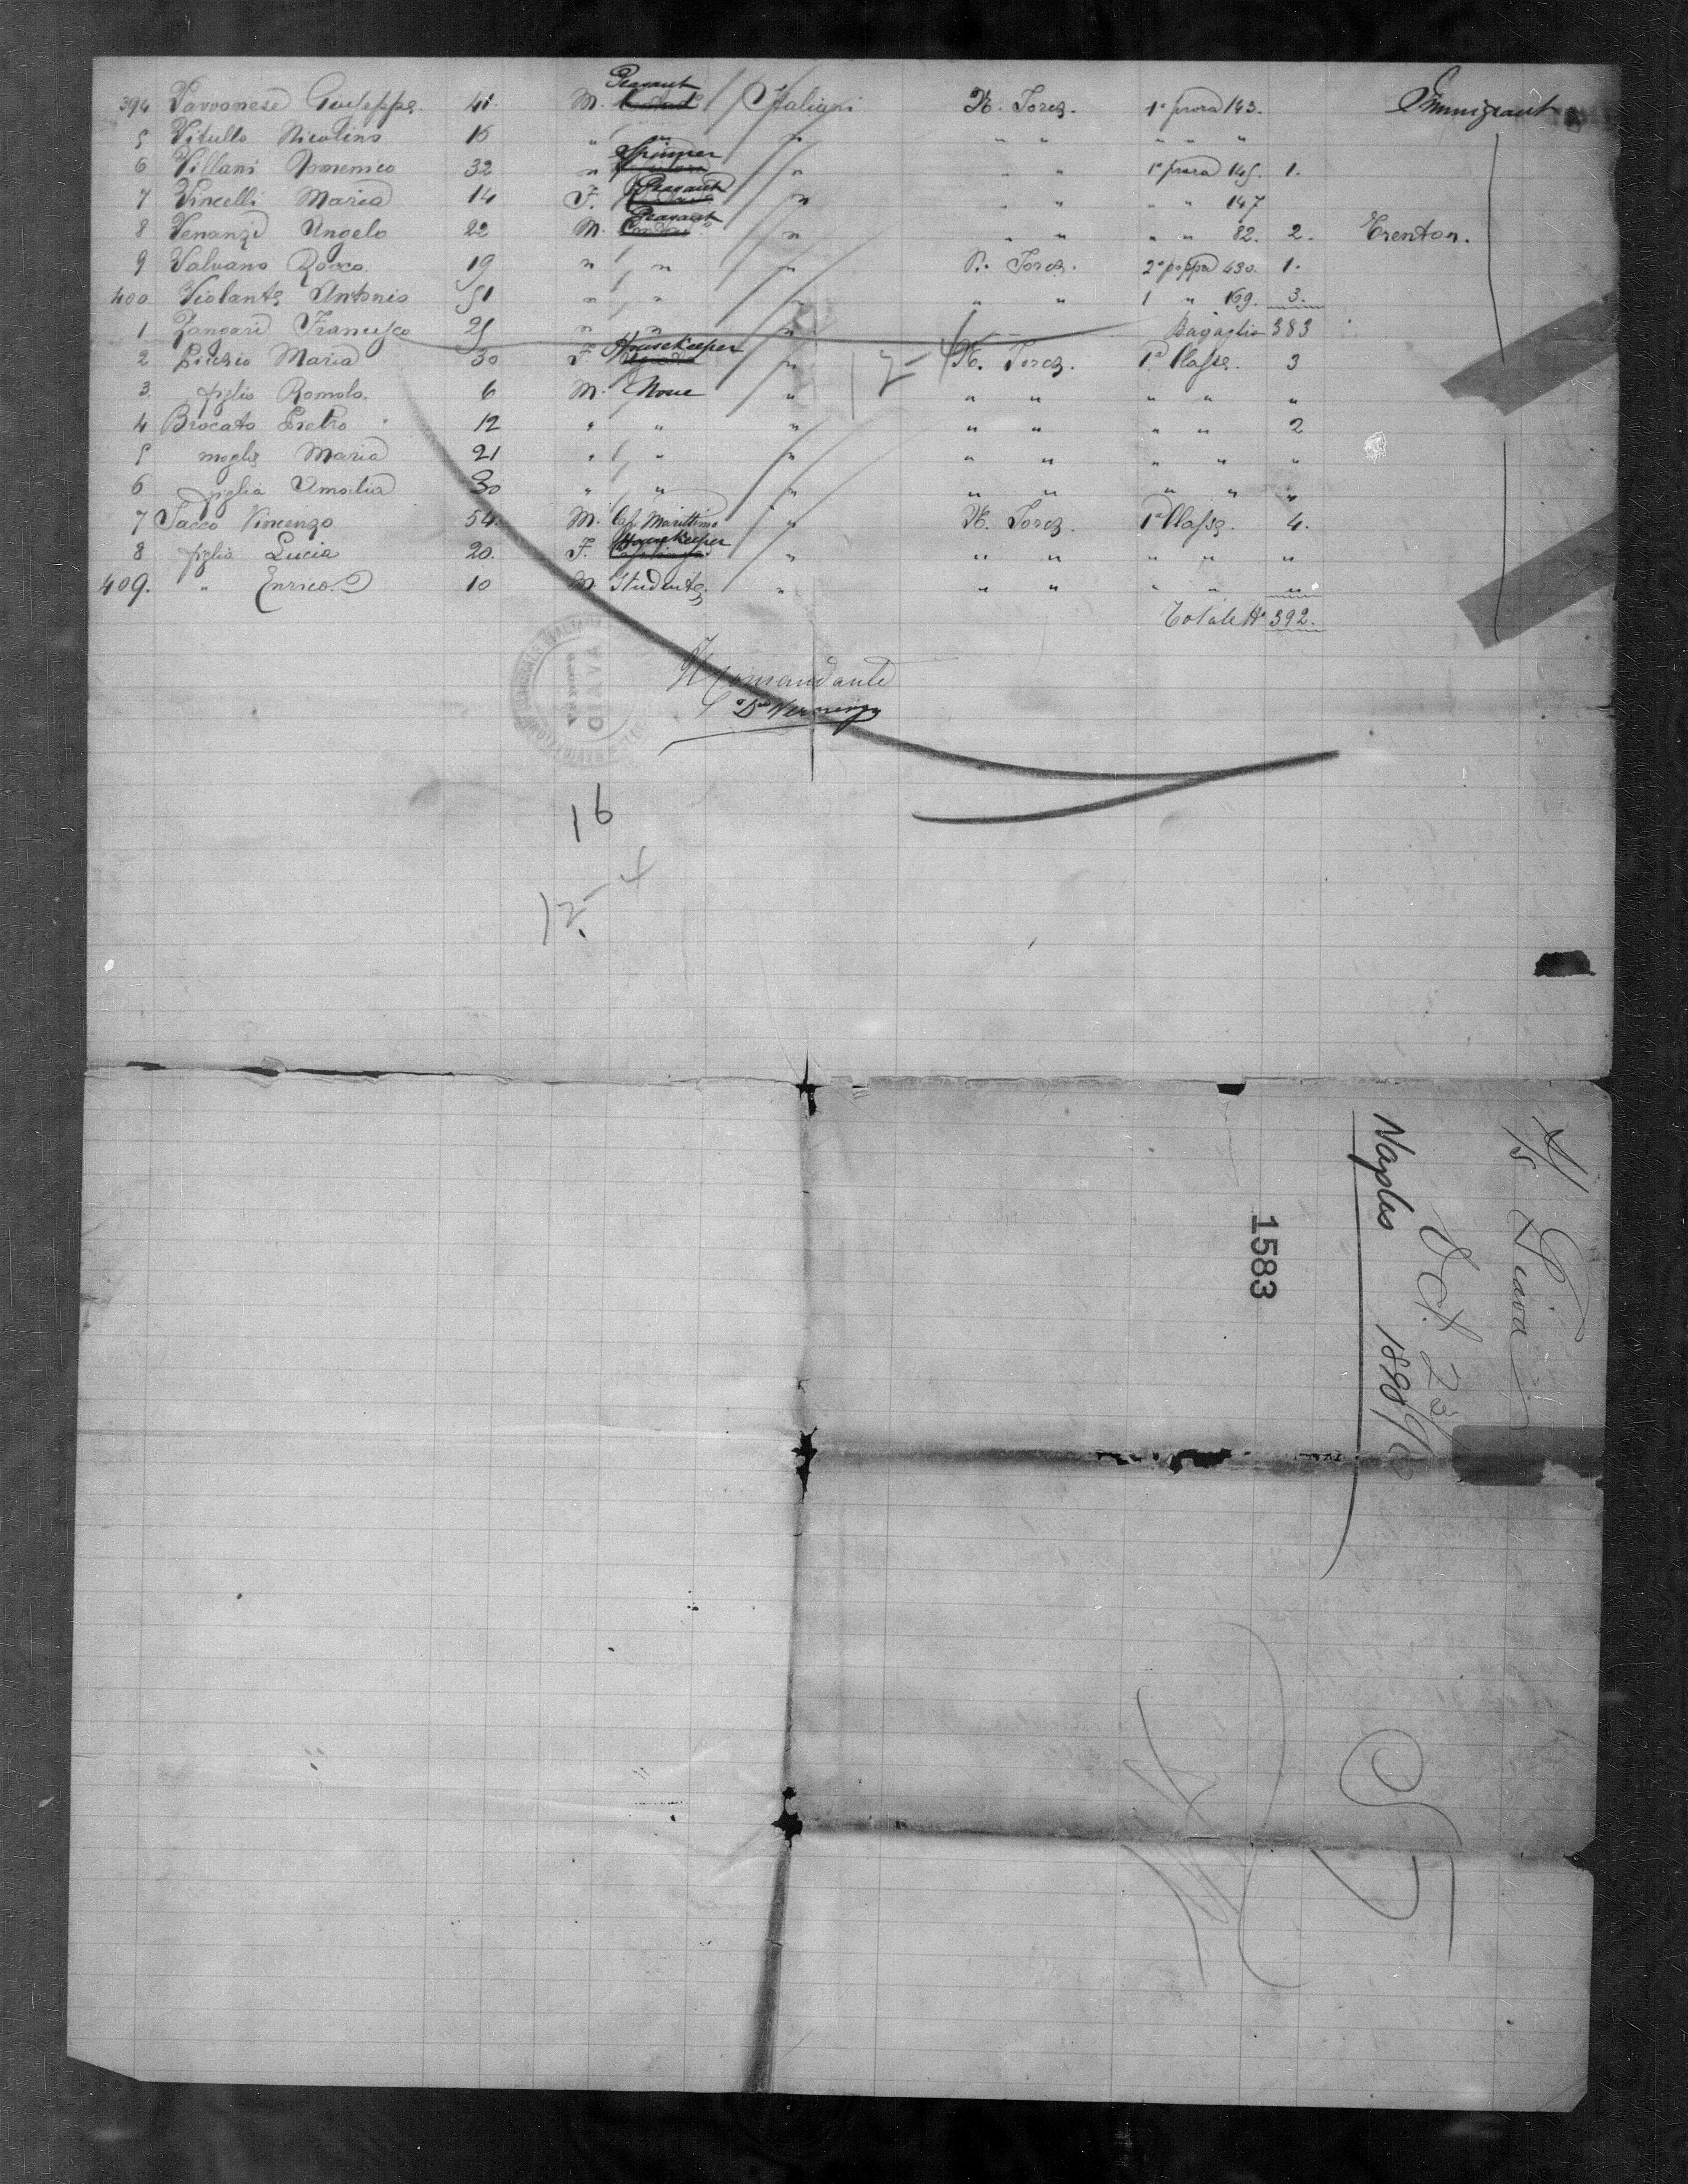 394 Varvonese Giuseppe. 41. M. Peasant Italiani N. Jorck. 1ª prora 143. Emmigrant
5 Vitullo Nicolino 16 " " " " " " " "
6 Villani Domenico 32 " Spinner " " " 1ª prora 145. 1.
7 Vincelli Maria 14 F. Peasant " " " " " 147
8 Venanzi Angelo 22 M. Peasant " " " " " 82. 2. Trenton.
9 Valvano Rocco. 19 " " " N. Jorck. 2ª poppa 430. 1.
400 Violante Antonio 51 " " " " " 1 " 169. 3.
1 Zangari Francesco 25 " " " Bagaglio 383
2 Maria 30 F. Housekeeper " N. Jorck. 1ª Classe. 3
3 figlio Romolo. 6 M. None " " " " " "
4 Brocato Pietro 12 " " " " " " " 2
5 moglie Maria 21 " " " " " " " "
6 figlia Amalia 30 " " " " " " " "
7 Sacco Vincenzo 54. M. Marittimo " N. Jorck 1ª Classe. 4.
8 figlia Lucia 20. F. Housekeeper " " " " " "
409. " Enrico 10 M. Studente " " " " " "
Totale Nº 392.
12-4
Il Comandante
GIAVA
16
12-4
S/S Giava
Oct 28
Naples 1889
1583